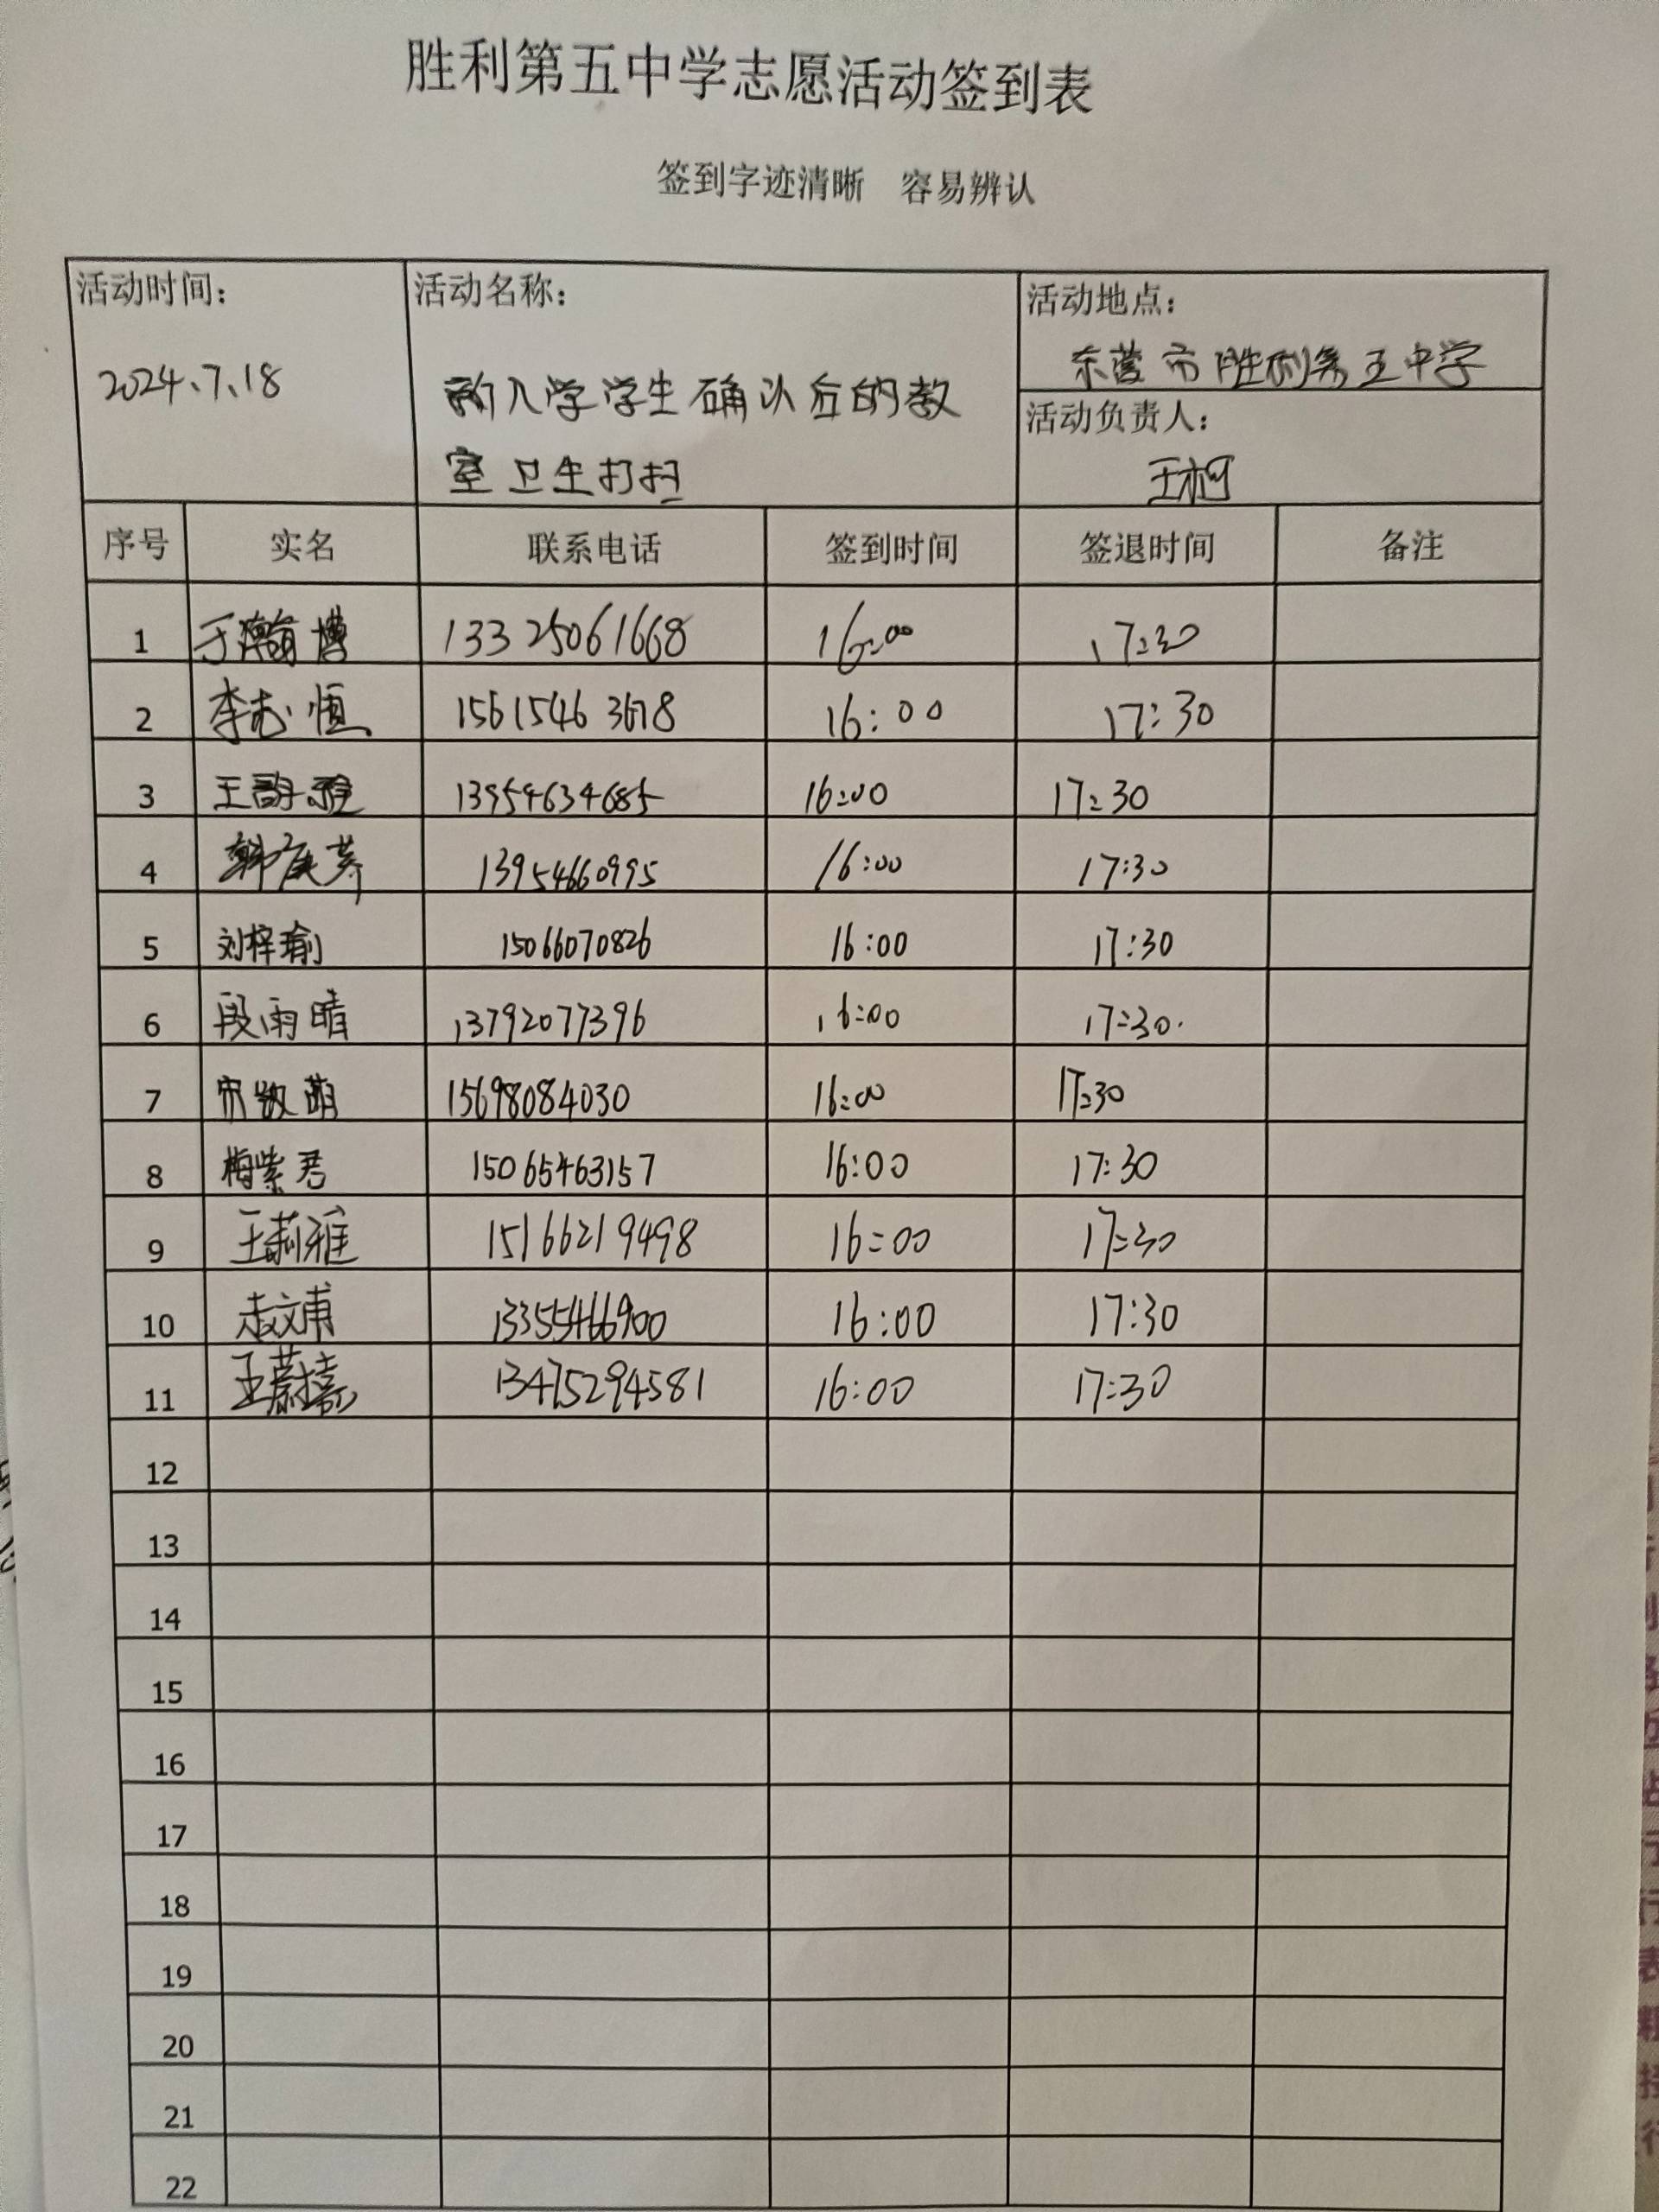 胜利第五中学志愿活动签到表
签到字迹清晰 容易辨认
活动时间: 活动名称: 活动地点:
2024.7.18 新入学学生确认后的教 东营市胜利第五中学
室卫生打扫 活动负责人:
王柯
序号 实名 联系电话 签到时间 签退时间 备注
1 于瀚博 13325061668 16:00 17:30
2 李志恒 15615463678 16:00 17:30
3 王 13954634685 16:00 17:30
4 韩 13954660995 16:00 17:30
5 刘梓瑜 15066070826 16:00 17:30
6 段雨晴 13792077396 16:00 17:30.
7 15698084030 16:00 17:30
8 梅紫君 15065463157 16:00 17:30
9 王莉雅 15166219498 16:00 17:30
10 文甫 13355466900 16:00 17:30
11 王蔚 13475294581 16:00 17:30
12
13
14
15
16
17
18
19
20
21
22